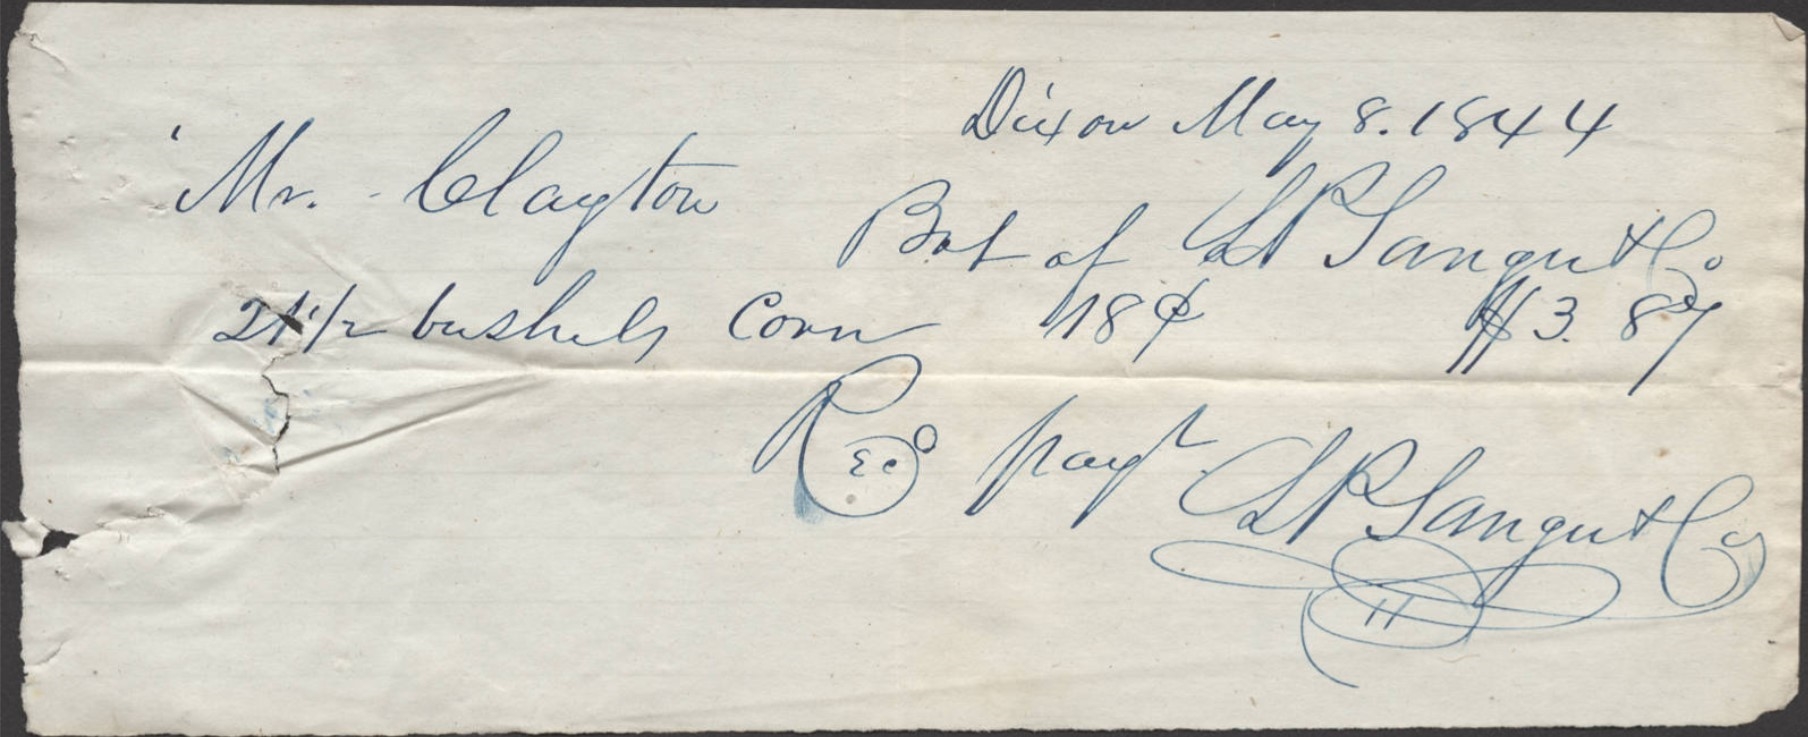 Dixon May 8. 1844
Mr. Clayton
Bot of LP Sanger & Co
21 1/2 bushels Corn 18¢ $3.87
Recd payt LP Sanger & Co